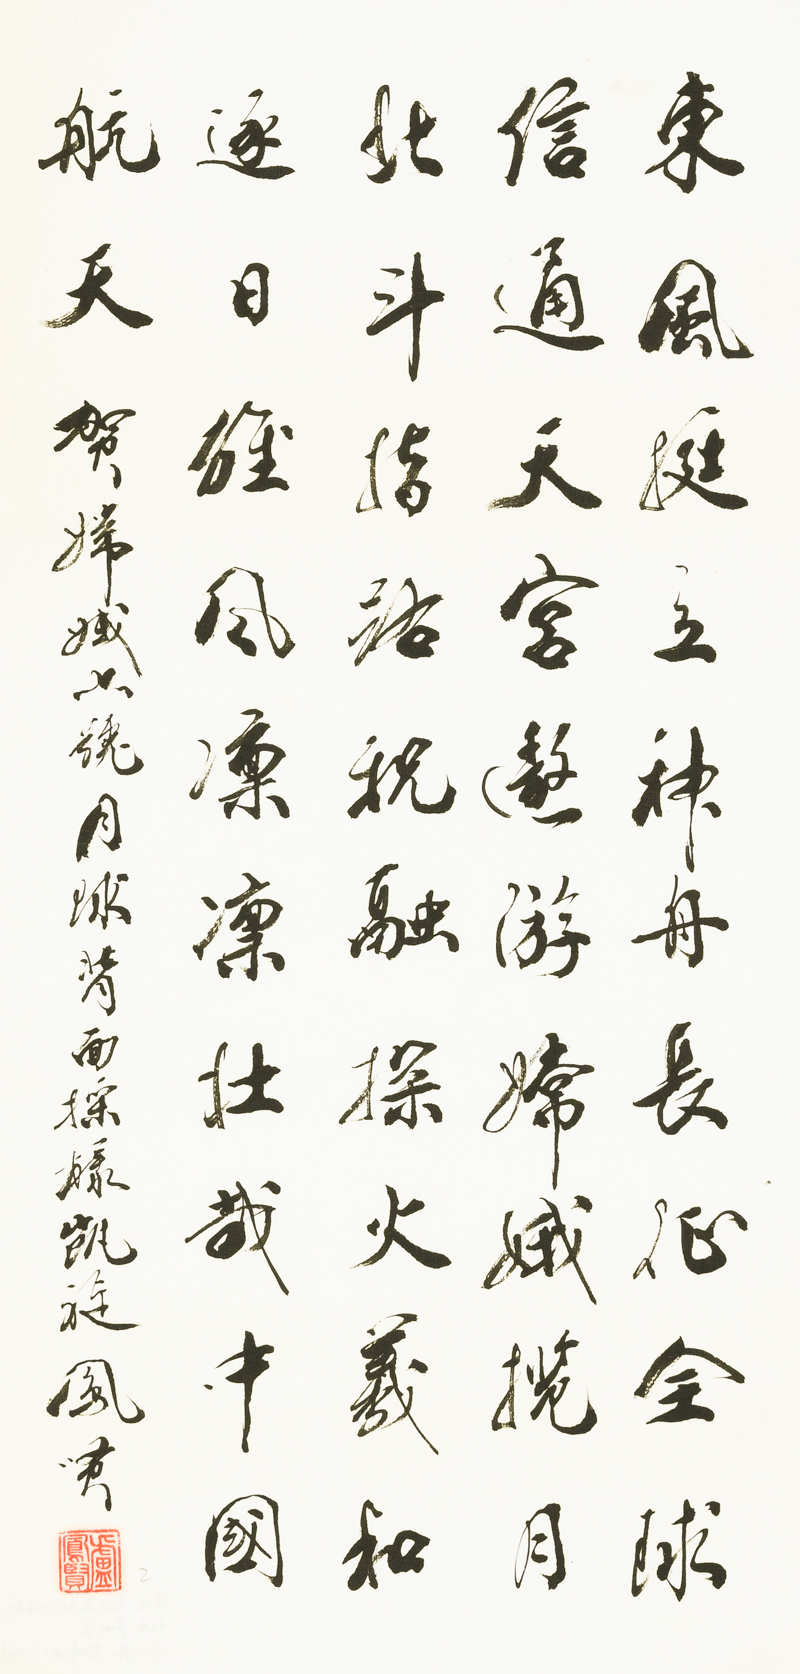 東風挺立神舟長征全球
信通天宫遨游嫦娥揽月
北斗指路祝融探火羲和
逐日雄风凛凛壮哉中國
航天 贺嫦娥六號月球背面採樣凱旋 鳳贤
盧鳳賢